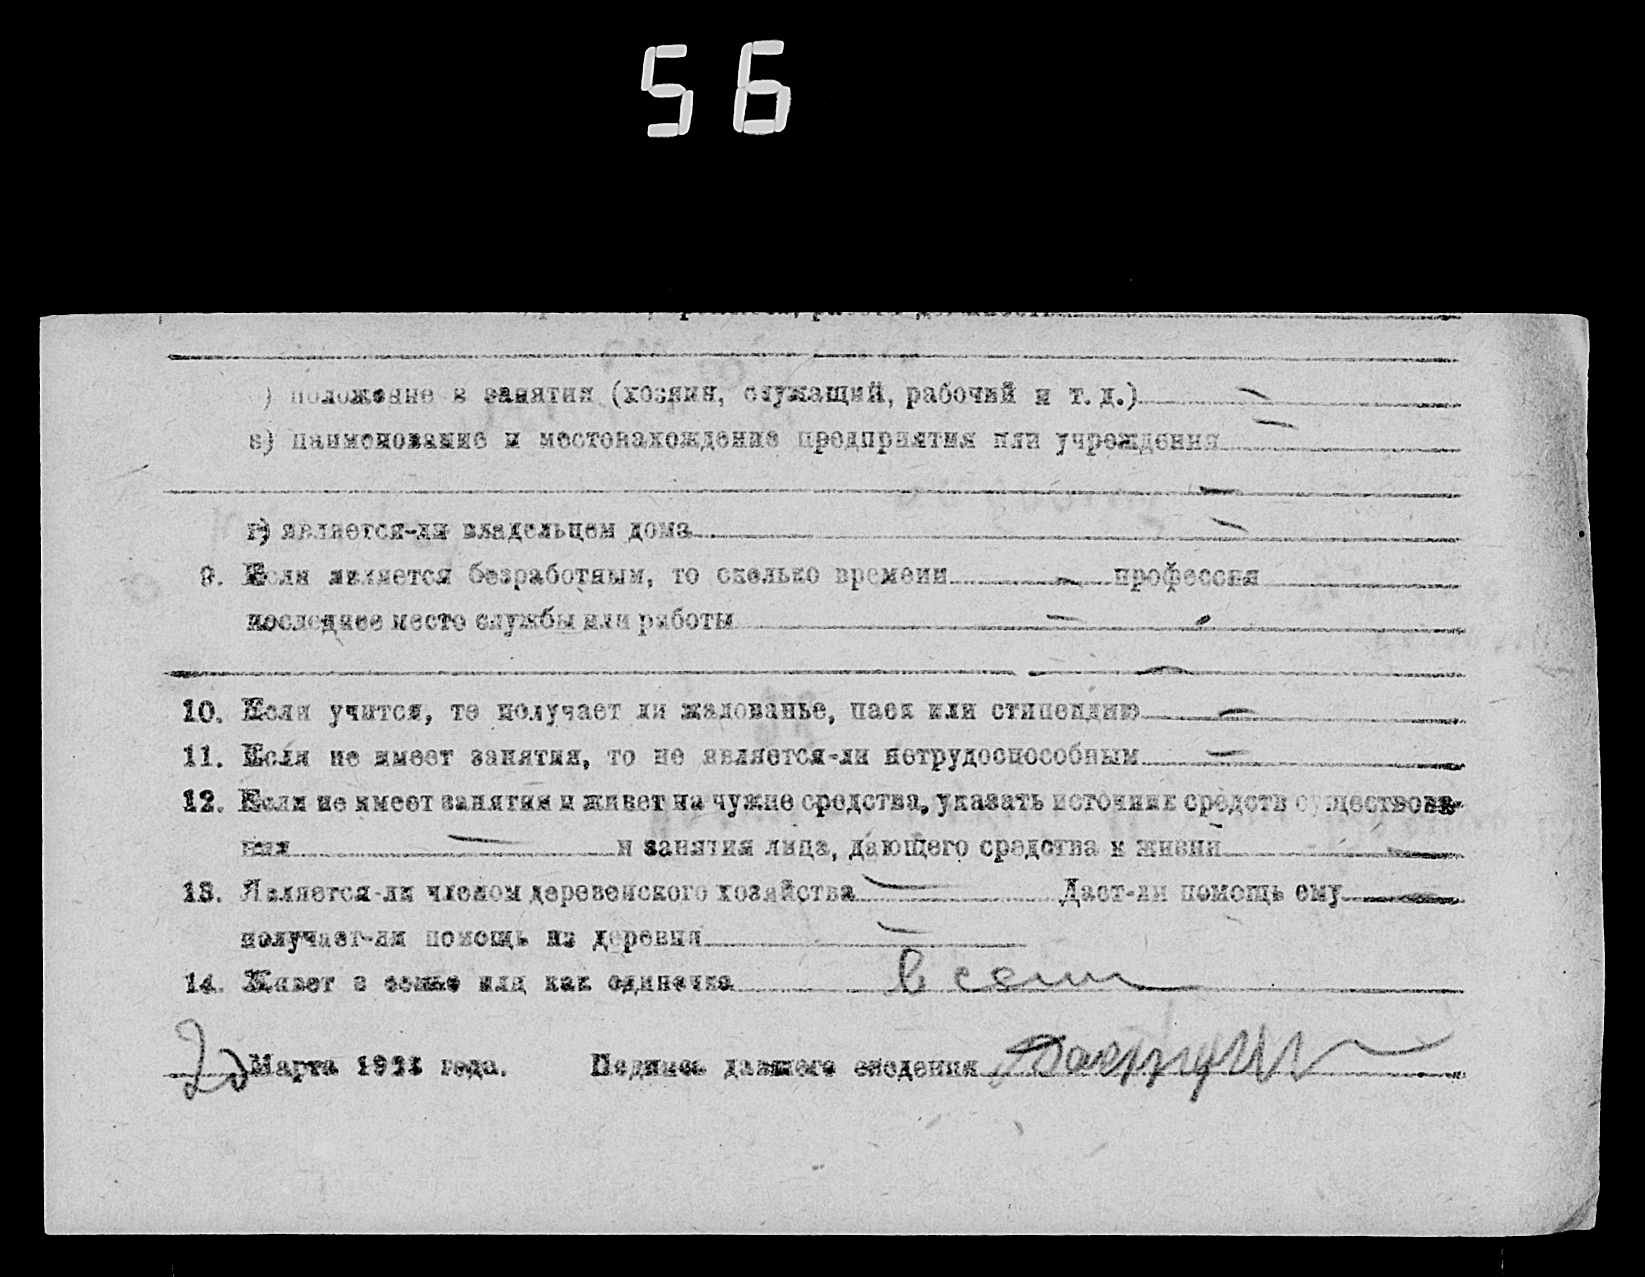 56
) положение в занятии (хозяин, служащий, рабочий и т. д.)
в) наименование и местонахождение предприятия или учреждения
г) является-ли владельцем дома
9. Если является безработным, то сколько времени профессия
последнее место службы или работы
10. Если учится, то получает ли жалованье, паек или стипендию
11. Если не имеет занятия, то не является-ли нетрудоспособным
12. Если не имеет занятия и живет на чужие средства, указать источник средств существова-
ния и занятия лица, дающего средства к жизни
13. Является-ли членом деревенского хозяйства Дает-ли помощь ему
получает-ли помощь из деревни
14. Живет в семье или как одиночка в семи
20 Марта 1923 года. Подпись давшего сведения